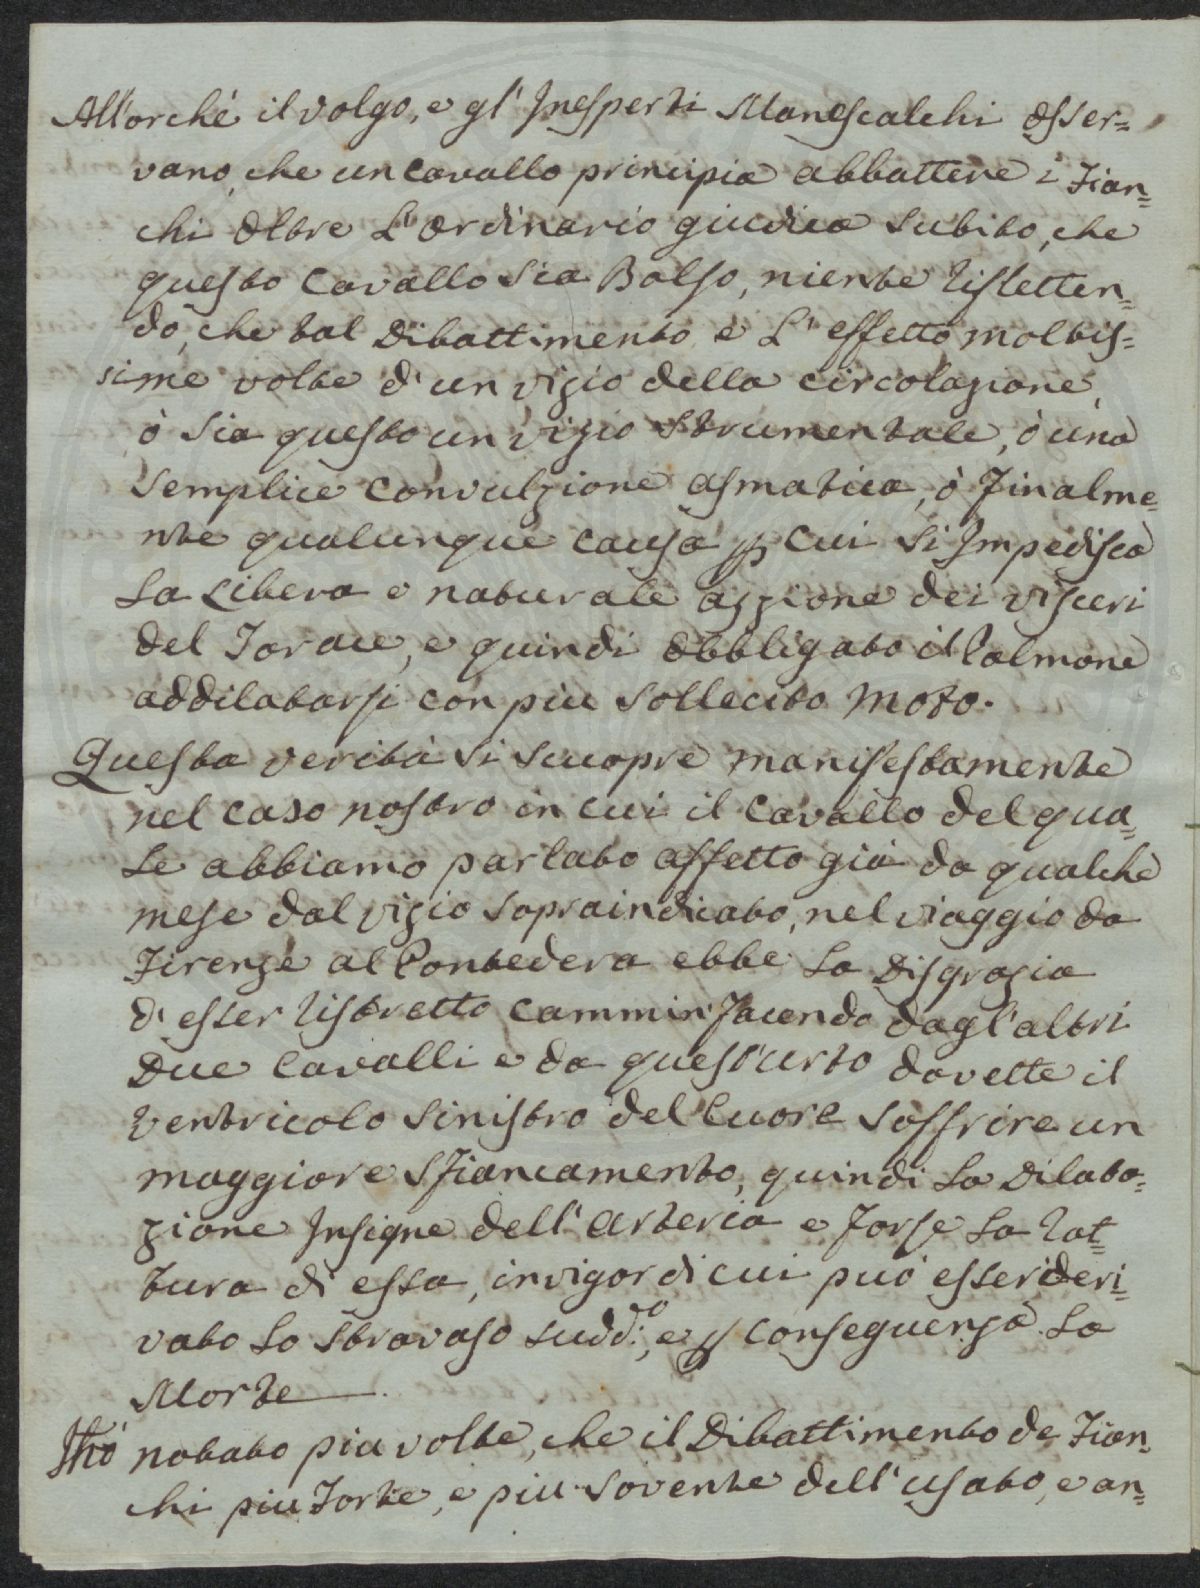 All'orchè il volgo, e gl'Inesperti Manescalchi osser=
vano, che un cavallo principia abbattere i Fian=
chi oltre L'ordinario giudica subito, che
questo Cavallo sia Bolso, niente riffletten=
do, che tal Dibattimento è L'effetto moltis=
sime volte d'un vizio della circolazione,
ò sia questo un vizio strumentale, ò una
semplice convulzione asmatica, ò Finalme=
nte qualunque causa p cui si Impedisca
La Libera e naturale azzione dei visceri
del Torace, e quindi obbligato il Polmone
addilatarsi con piu sollecito moto.
Questa verità si scuopre manifestamente
nel caso nostro in cui il Cavallo del qua=
Le abbiamo parlato affetto già da qualche
mese dal vizio sopraindicato, nel viaggio da
Firenze al Pontedera ebbe La Disgrazia
d'esser ristretto cammin Facendo dagl'altri
Due Cavalli e da quest'urto dovette il
ventricolo sinistro del Cuore soffrire un
maggiore sfiancamento, quindi La Dilata=
zione Insigne dell'arteria e Forse La rot=
tura di essa, in vigor di cui può esser deri=
vato Lo stravaso sudd.º, e p conseguenza La
Morte
Hò notato piu volte, che il Dibattimento de Fian=
chi piu Forte, e piu sovente dell'usato, e an=